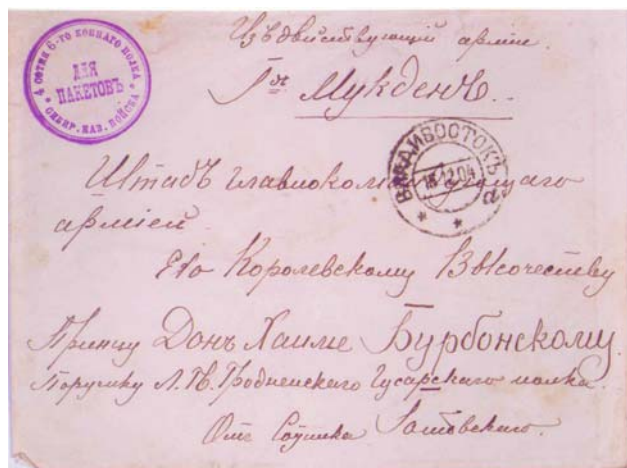 4 СОТНЯ 6-ГО КОННАГО ПОЛКА
ДЛЯ
ПАКЕТОВЪ
СИБИР. КАЗ. ВОЙСКА
Изъ действующей армiи.
Гъ Мукденъ.
ВЛАДИВОСТОКЪ
15.12.04
а
Штабъ главнокомандующаго
армiей.
Его Королевскому Высочеству
Принцу Донъ Хаиме Бурбонскому.
Поручику Л. Гв. Гродненскаго Гусарскаго полка.
Отъ